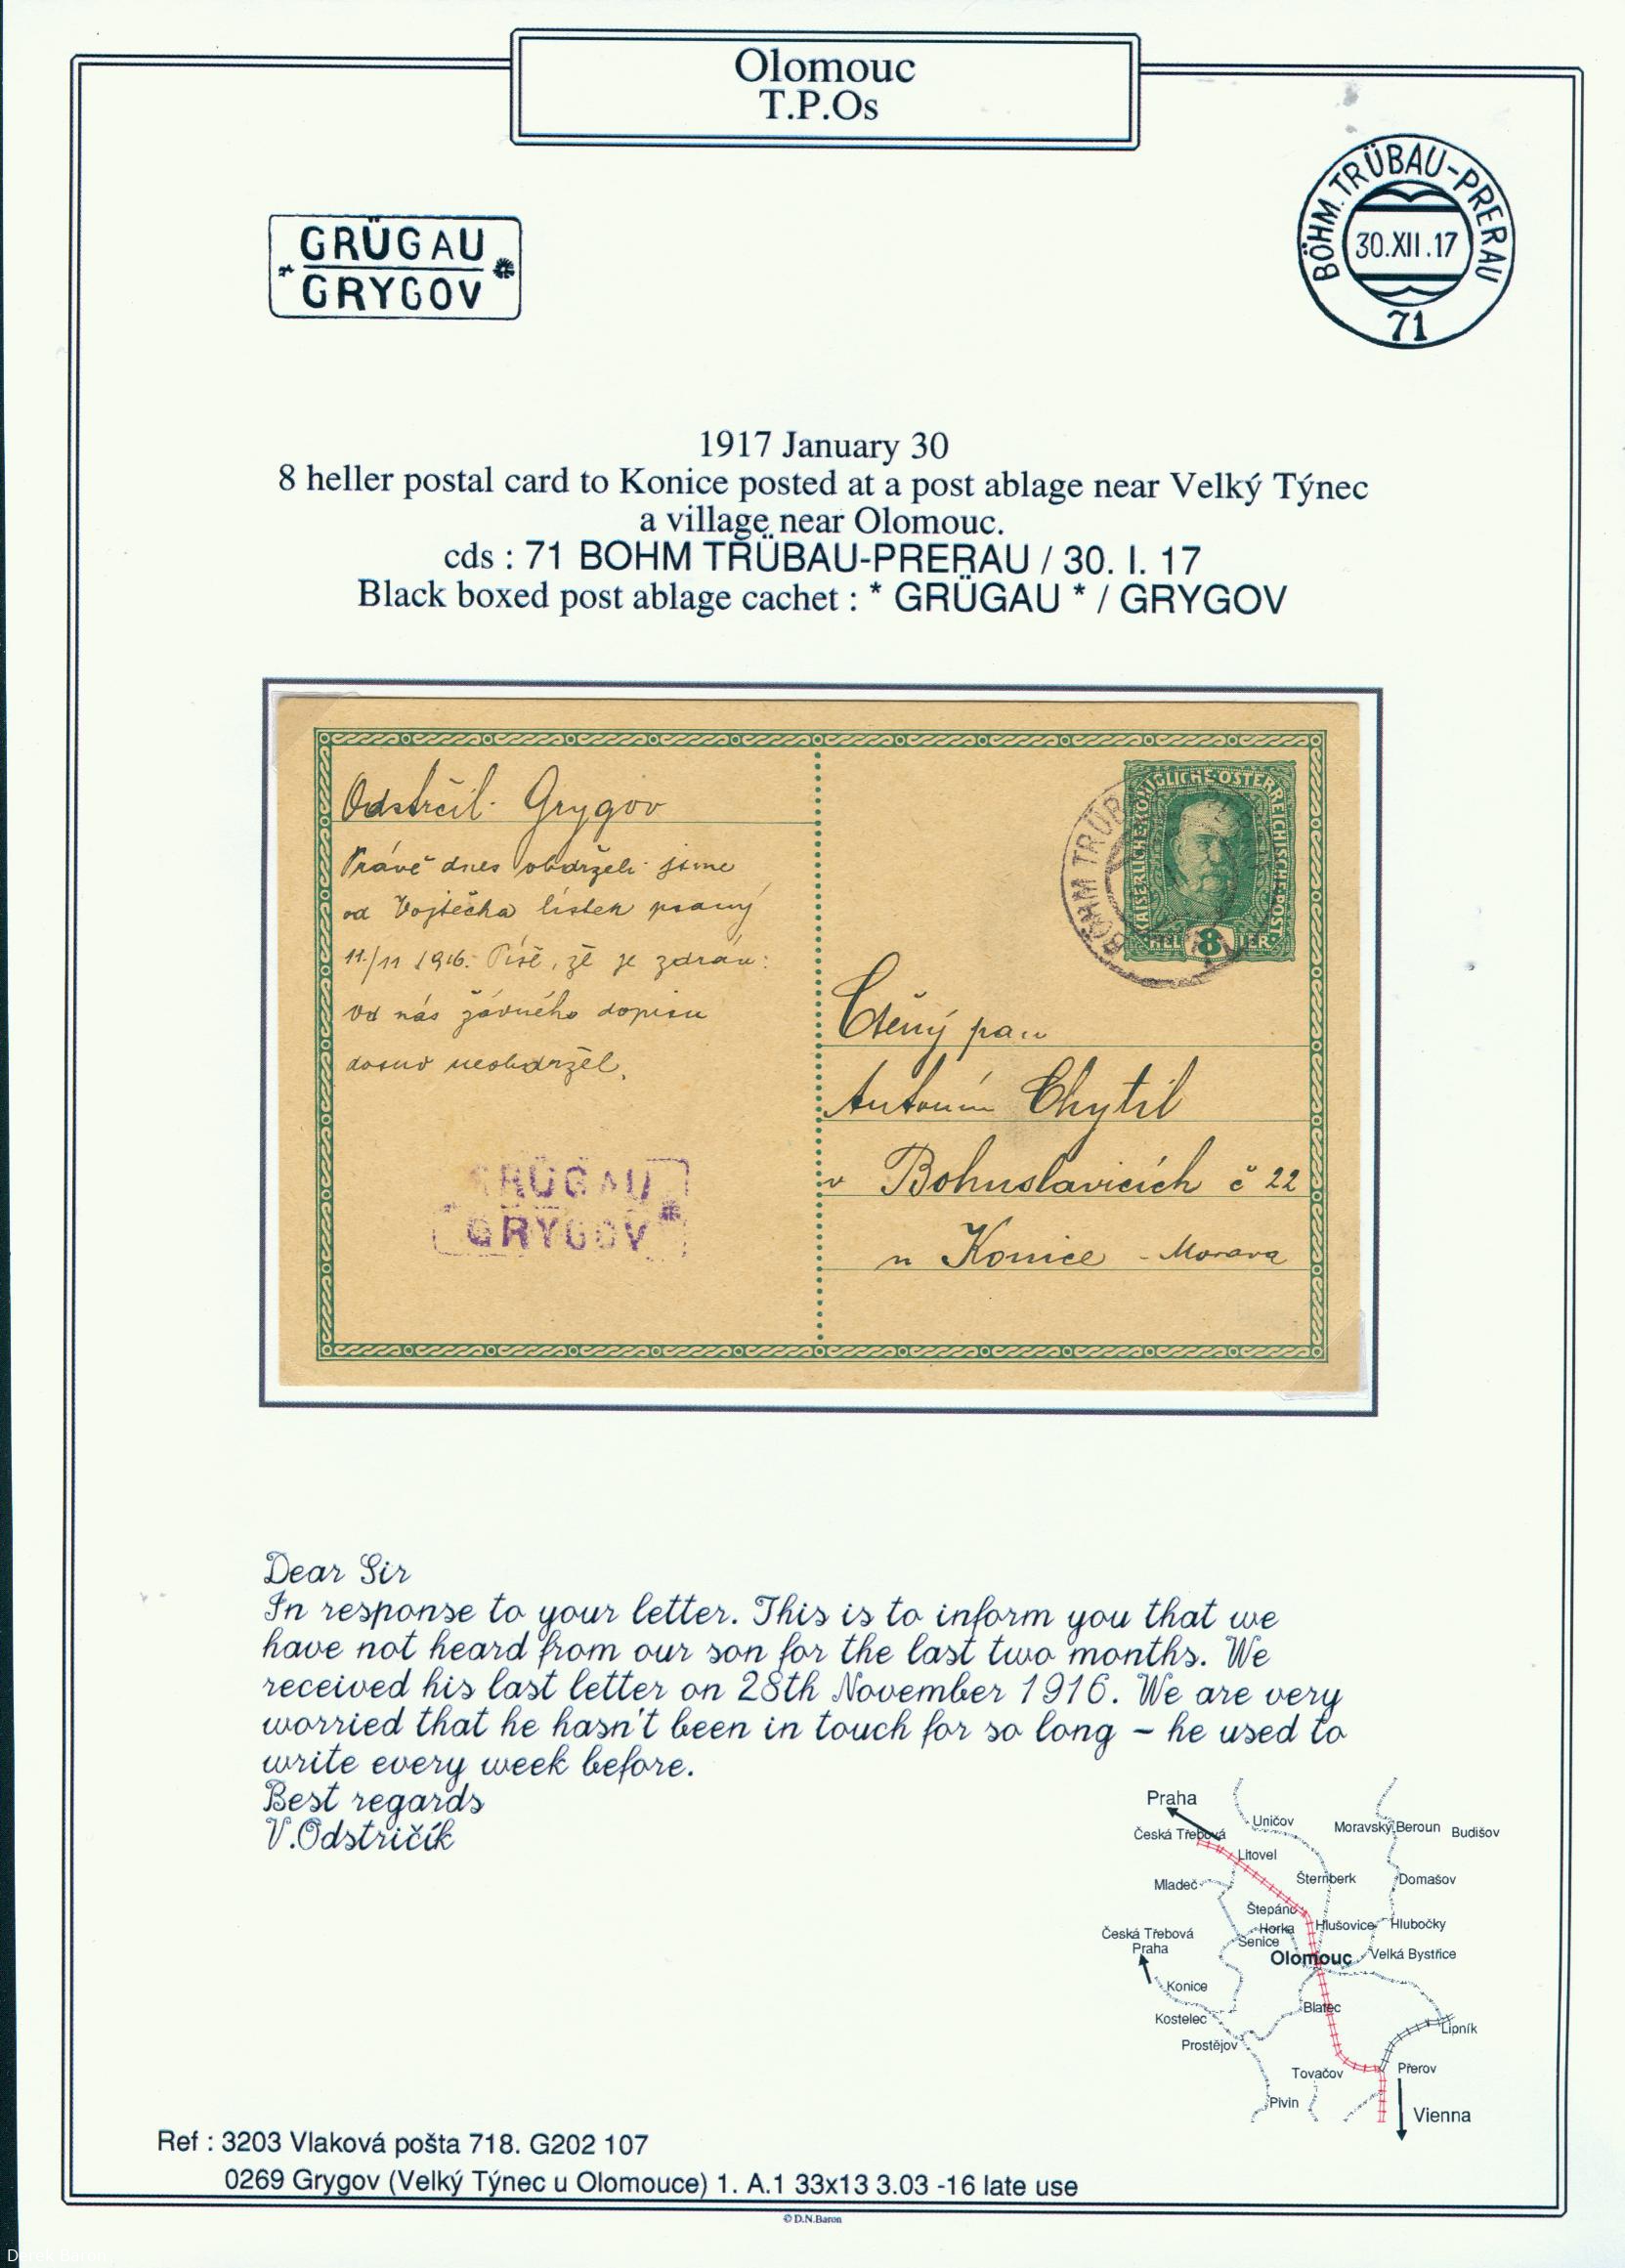 Olomouc
T.P.Os
GRÜGAU
* *
GRYGOV
BÖHM.TRÜBAU-PRERAU
30.XII.17
71
1917 January 30
8 heller postal card to Konice posted at a post ablage near Velký Týnec
a village near Olomouc.
cds : 71 BOHM TRÜBAU-PRERAU / 30. I. 17
Black boxed post ablage cachet : * GRÜGAU * / GRYGOV
Odstrčil. Grygov
Právě dnes obdrželi jsme
od Vojtěcha lístek psaný
11./11 1916. Píše, že je zdráv:
Od nás žádného dopisu
dosud neobdržel.
GRÜGAU
GRYGOV
KAISERLICHE·KÖNIGLICHE·ÖSTERREICHISCHE·POST
HELLER
8
BÖHM TRÜB
Ctěný pan
Antonín Chytil
v Bohuslavicích č 22
u Konice - Morava
Dear Sir
In response to your letter. This is to inform you that we
have not heard from our son for the last two months. We
received his last letter on 28th November 1916. We are very
worried that he hasn't been in touch for so long – he used to
write every week before.
Best regards
V.Odstričík
Praha
Uničov
Moravský Beroun
Budišov
Česká Třebová
Litovel
Mladeč
Šternberk
Domašov
Štepáno
Horka
Hlušovice
Hlubočky
Česká Třebová
Praha
Senice
Olomouc
Velká Bystřice
Konice
Blatec
Kostelec
Lipník
Prostějov
Tovačov
Přerov
Pivin
Vienna
Ref : 3203 Vlaková pošta 718. G202 107
0269 Grygov (Velký Týnec u Olomouce) 1. A.1 33x13 3.03 -16 late use
© D.N.Baron
Derek Baron